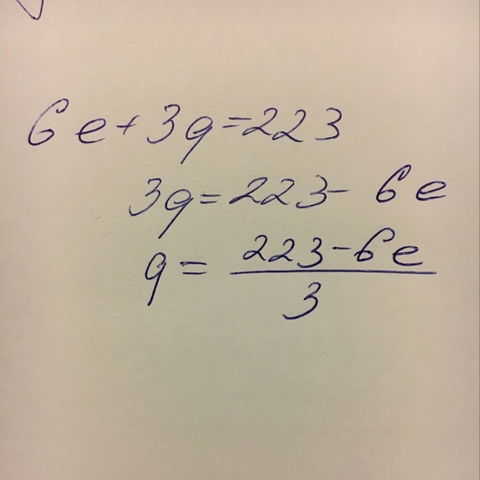 6e+3q=223
3q=223-6e
q=\frac{223-6e}{3}